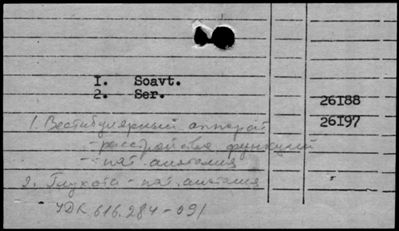 I. Soavt.
2. Ser.
26I88
26I97
1. Вестибулярный аппарат
- расстройства функций
- пат. анатомия
2. Глухота - пат. анатомия
УДК 616.284-091